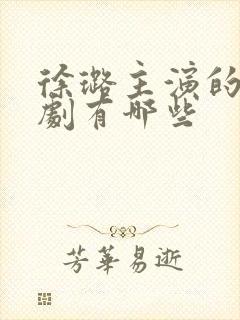 徐璐主演的
劇有哪些
芳華易逝